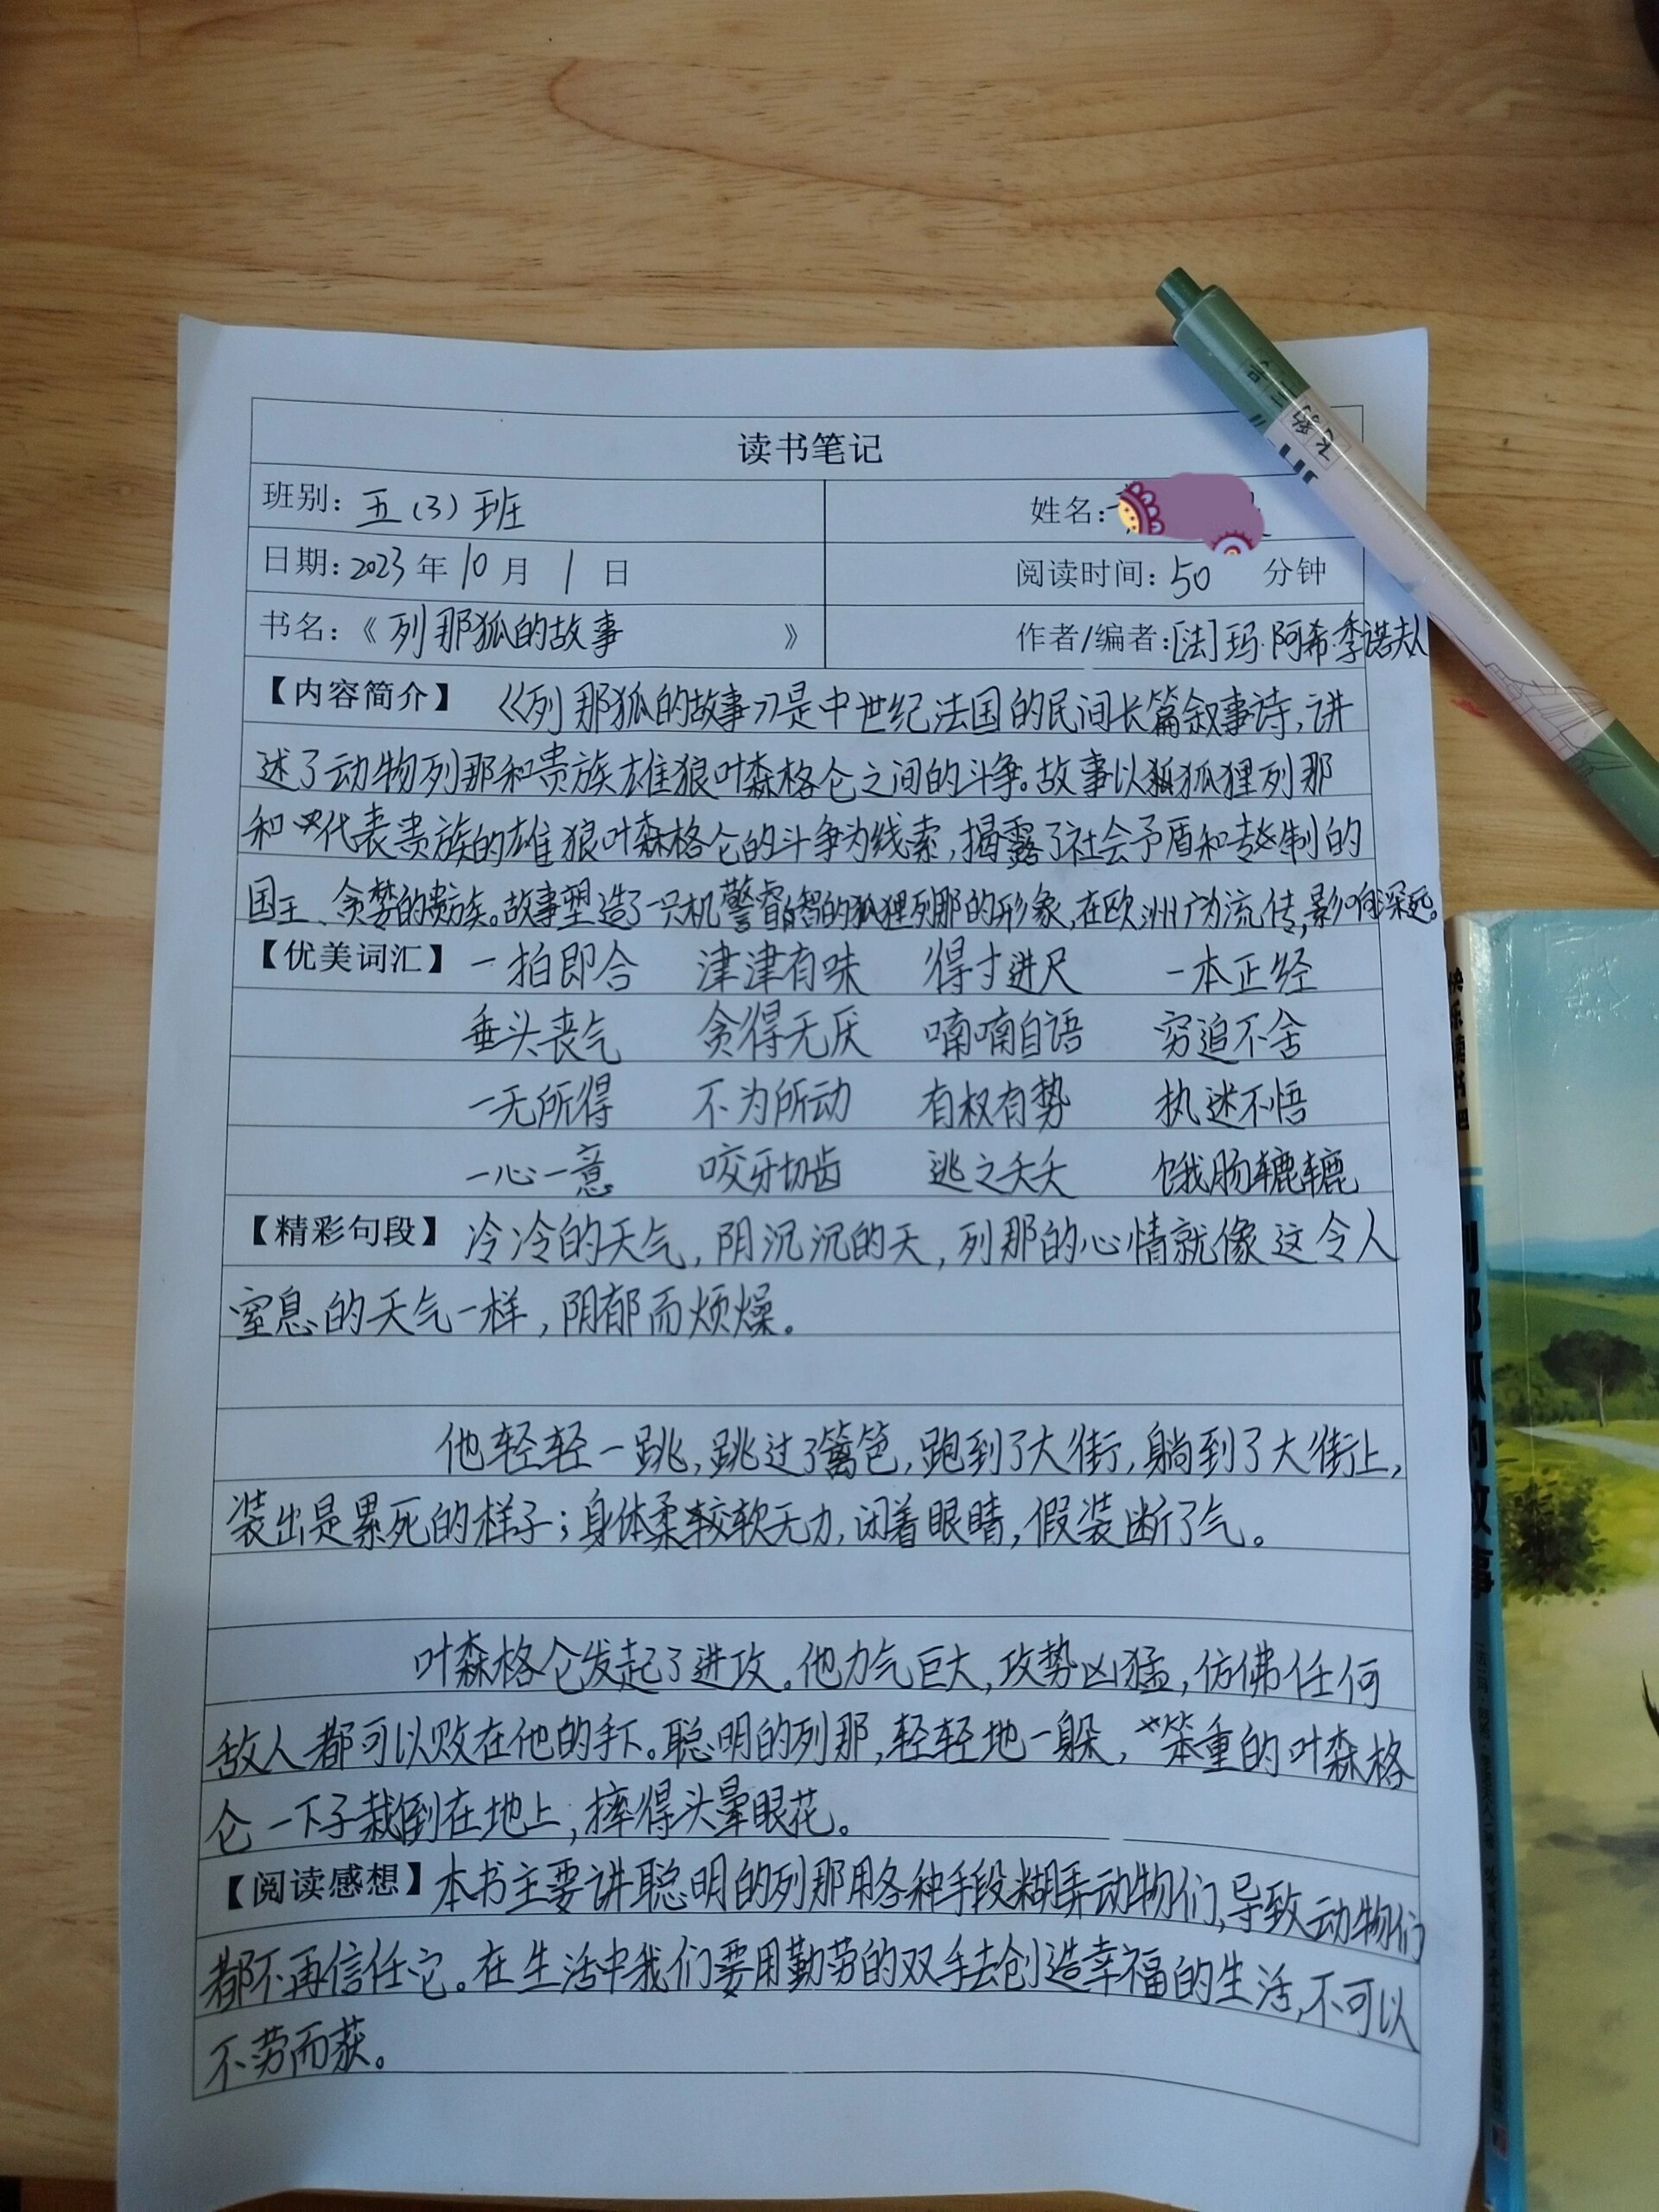 读书笔记
班别：五（3）班 姓名：
日期：2023年10月1日 阅读时间：50 分钟
书名：《列那狐的故事》 作者/编者：[法]玛·阿希·季诺夫人
【内容简介】《列那狐的故事》是中世纪法国的民间长篇叙事诗，讲
述了动物列那和贵族雄狼叶森格仑之间的斗争。故事以狐狸列那
和代表贵族的雄狼叶森格仑的斗争为线索，揭露了社会矛盾和专制的
国王、贪婪的贵族。故事塑造了一只机警睿智的狐狸列那的形象，在欧洲广为流传，影响深远。
【优美词汇】一拍即合 津津有味 得寸进尺 一本正经
垂头丧气 贪得无厌 喃喃自语 穷追不舍
一无所得 不为所动 有权有势 执迷不悟
一心一意 咬牙切齿 逃之夭夭 饿肠辘辘
【精彩句段】冷冷的天气，阴沉沉的天，列那的心情就像这令人
窒息的天气一样，阴郁而烦燥。
他轻轻一跳，跳过了篱笆，跑到了大街，躺到了大街上，
装出是累死的样子；身体柔软无力，闭着眼睛，假装断了气。
叶森格仑发起了进攻。他力气巨大，攻势凶猛，仿佛任何
敌人都可以败在他的手下。聪明的列那，轻轻地一躲，笨重的叶森格
仑一下子栽倒在地上，摔得头晕眼花。
【阅读感想】本书主要讲聪明的列那用各种手段糊弄动物们，导致动物们
都不再信任它。在生活中我们要用勤劳的双手去创造幸福的生活，不可以
不劳而获。
快乐读书吧
列那狐的故事